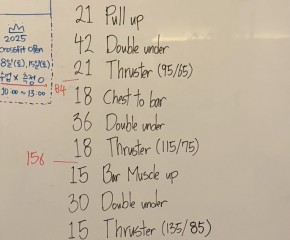 2025
CrossFit Open
21 Pull up
42 Double under
21 Thruster (95/65)
84
18 Chest to bar
36 Double under
18 Thruster (115/75)
156
15 Bar Muscle up
30 Double under
15 Thruster (135/85)